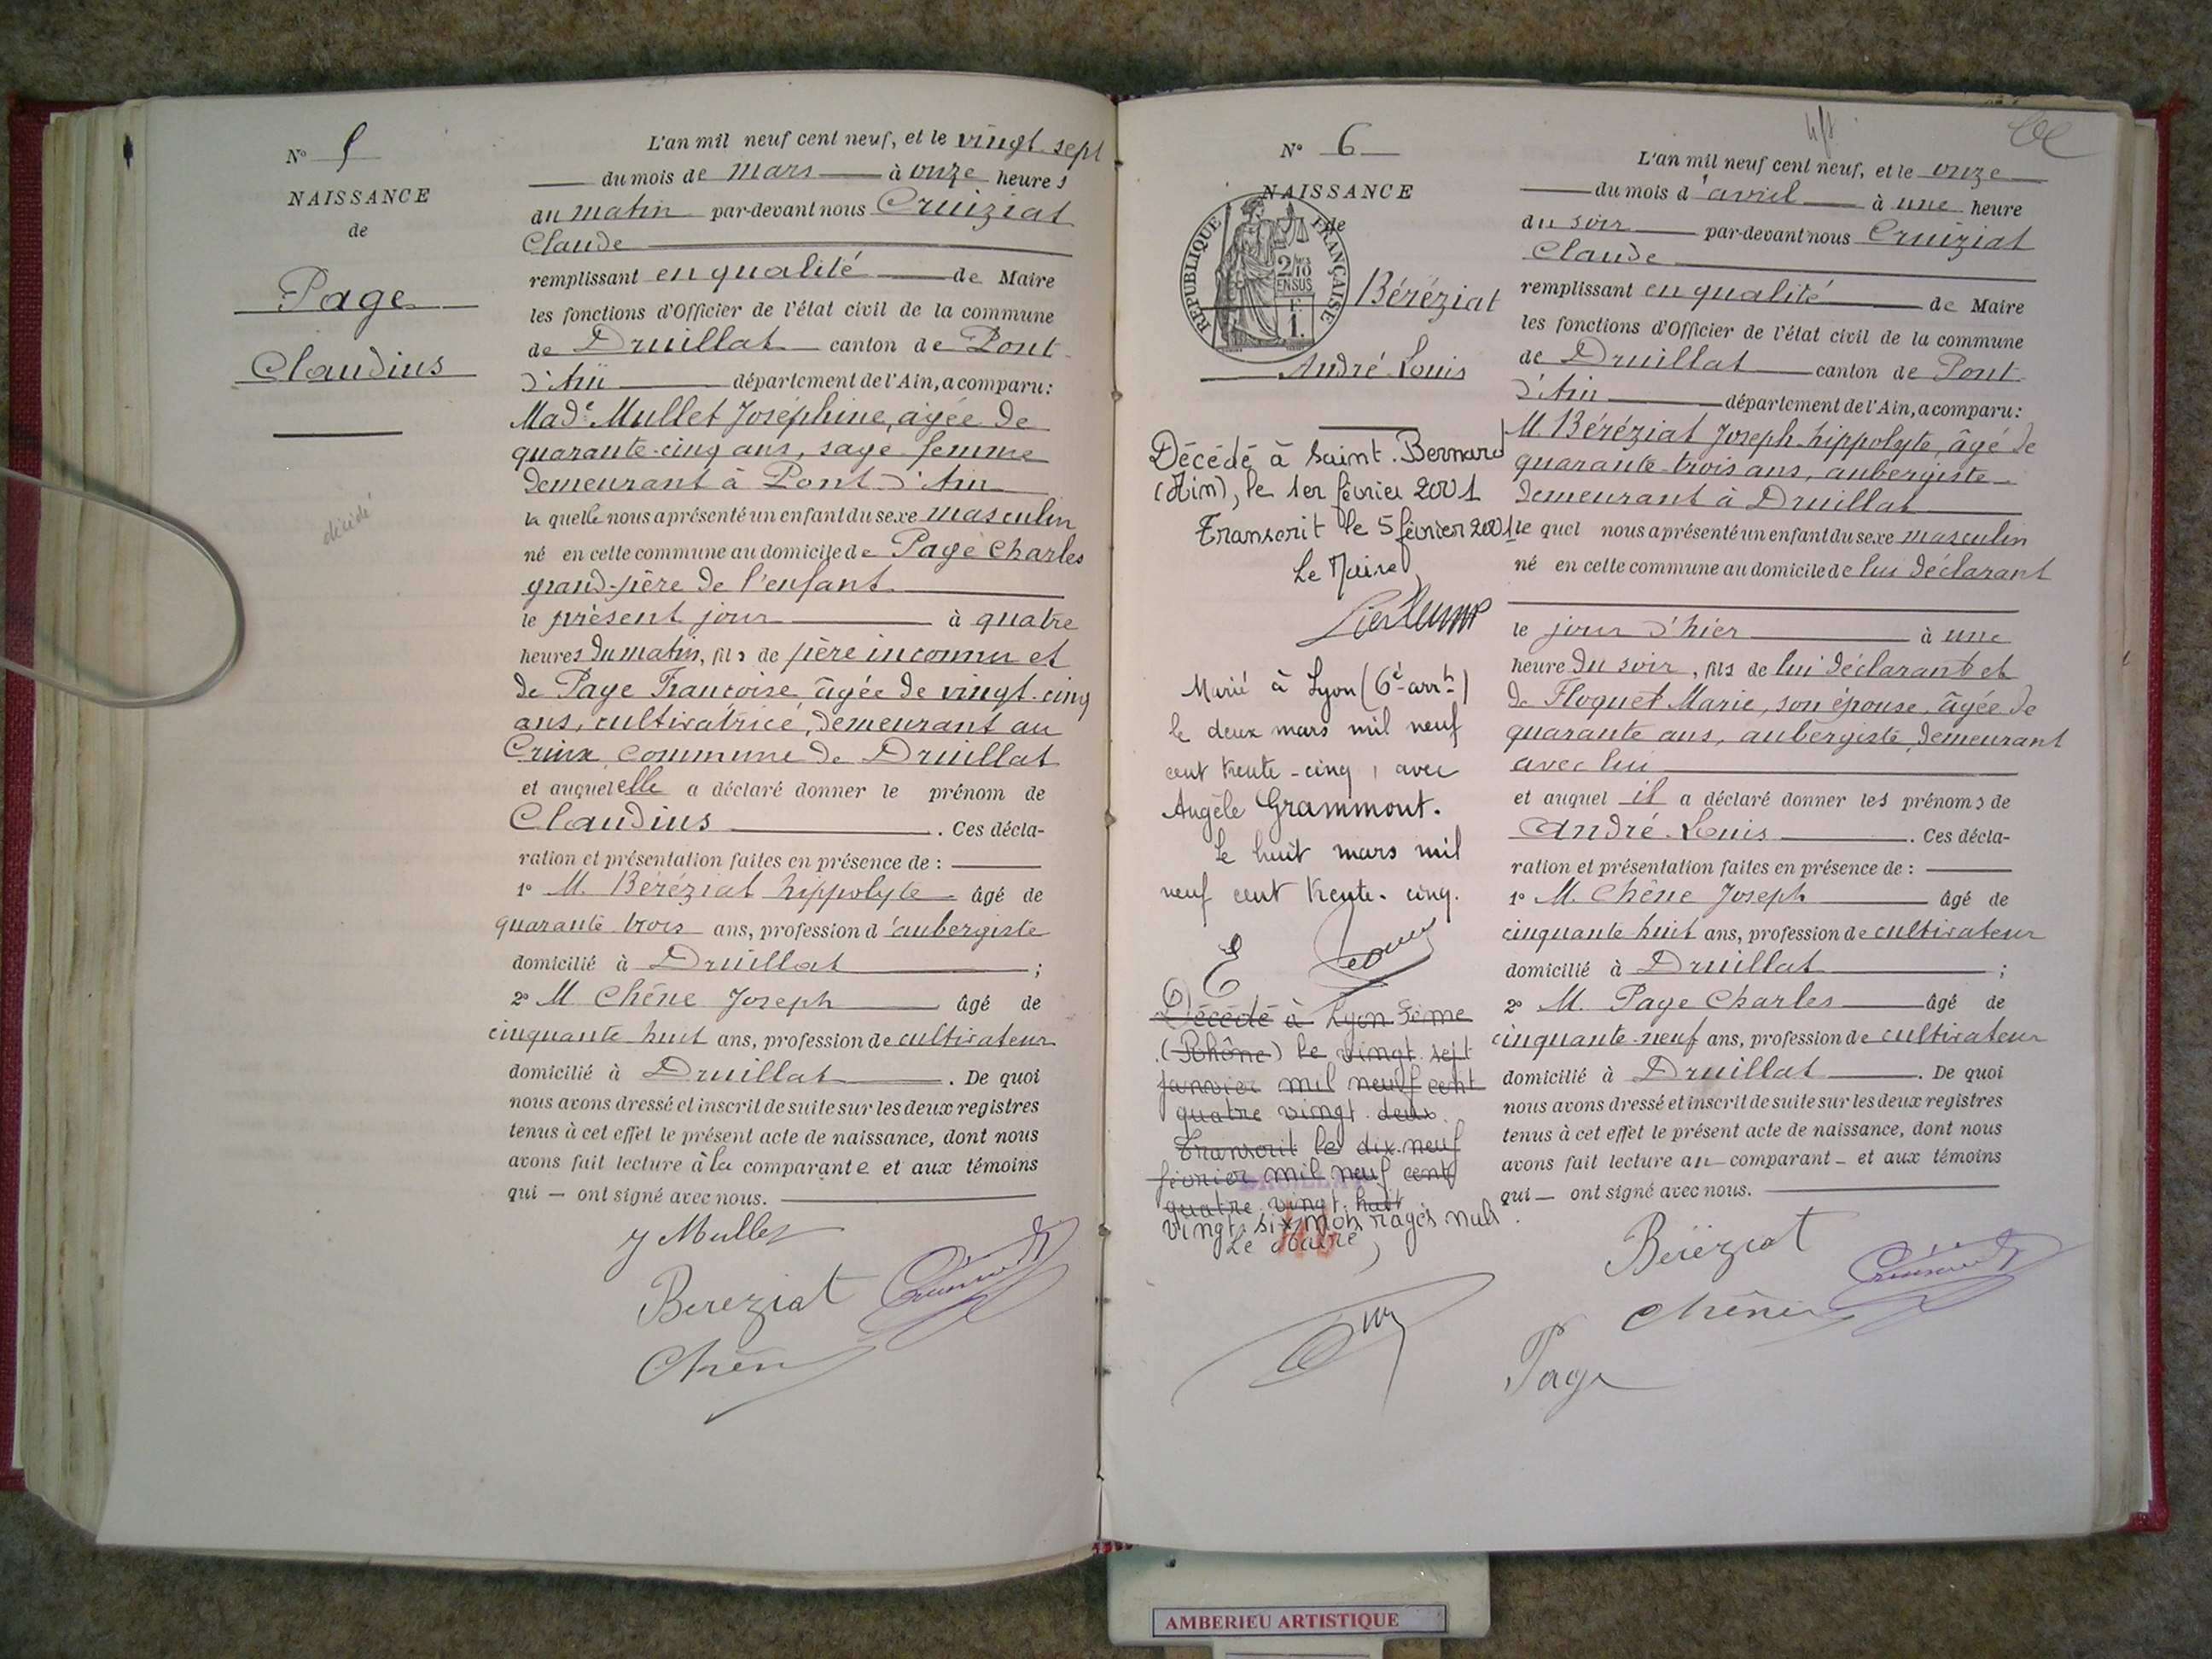 N° 5
NAISSANCE
de
Page
Claudius
décédé
L'an mil neuf cent neuf, et le vingt-sept
du mois de mars à onze heures
du matin par-devant nous Cruiziat
Claude
remplissant en qualité de Maire
les fonctions d'Officier de l'état civil de la commune
de Druillat canton de Pont-
d'Ain département de l'Ain, a comparu:
Made Mullet Joséphine, âgée de
quarante-cinq ans, sage-femme
demeurant à Pont-d'Ain
la quelle nous a présenté un enfant du sexe masculin
né en cette commune au domicile de Page Charles
grand-père de l'enfant
le présent jour à quatre
heures du matin, fils de père inconnu et
de Page Françoise, âgée de vingt-cinq
ans, cultivatrice, demeurant au
commune de Druillat
et auquel elle a déclaré donner le prénom de
Claudius. Ces décla-
ration et présentation faites en présence de :
1° M. Béréziat hippolyte âgé de
quarante trois ans, profession d'aubergiste
domicilié à Druillat ;
2° M Chêne Joseph âgé de
cinquante huit ans, profession de cultivateur
domicilié à Druillat. De quoi
nous avons dressé et inscrit de suite sur les deux registres
tenus à cet effet le présent acte de naissance, dont nous
avons fait lecture à la comparante et aux témoins
qui — ont signé avec nous.
J Mullet
Bereziat
Chêne
N° 6
NAISSANCE
de
REPUBLIQUE FRANÇAISE
2/10
EN SUS
1F
1.
Béréziat
André Louis
Décédé à Saint-Bernard
(Ain), le 1er février 2001
Transcrit le 5 février 2001
Le Maire,
Marié à Lyon (6e arrt)
le deux mars mil neuf
cent trente-cinq, avec
Angèle Grammont.
Le huit mars mil
neuf cent trente-cinq.
Décédé à Lyon 3ème
(Rhône) le vingt sept
janvier mil neuf cent
quatre vingt deux.
Transcrit le dix neuf
février mil neuf cent
quatre vingt huit
vingt six mots rayés nuls.
Le Maire,
L'an mil neuf cent neuf, et le onze
du mois d'avril à une heure
du soir par-devant nous Cruiziat
Claude
remplissant en qualité de Maire
les fonctions d'Officier de l'état civil de la commune
de Druillat canton de Pont-
d'Ain département de l'Ain, a comparu:
M. Béréziat Joseph-hippolyte, âgé de
quarante-trois ans, aubergiste
demeurant à Druillat
le quel nous a présenté un enfant du sexe masculin
né en cette commune au domicile de lui déclarant
le jour d'hier à une
heure du soir, fils de lui déclarant et
de Floquet Marie, son épouse, âgée de
quarante ans, aubergiste, demeurant
avec lui
et auquel il a déclaré donner les prénoms de
André-Louis. Ces décla-
ration et présentation faites en présence de :
1° M. Chêne Joseph âgé de
cinquante huit ans, profession de cultivateur
domicilié à Druillat ;
2° M. Page Charles âgé de
cinquante-neuf ans, profession de cultivateur
domicilié à Druillat. De quoi
nous avons dressé et inscrit de suite sur les deux registres
tenus à cet effet le présent acte de naissance, dont nous
avons fait lecture au comparant et aux témoins
qui — ont signé avec nous.
Béréziat
Chêne
Page
AMBERIEU ARTISTIQUE